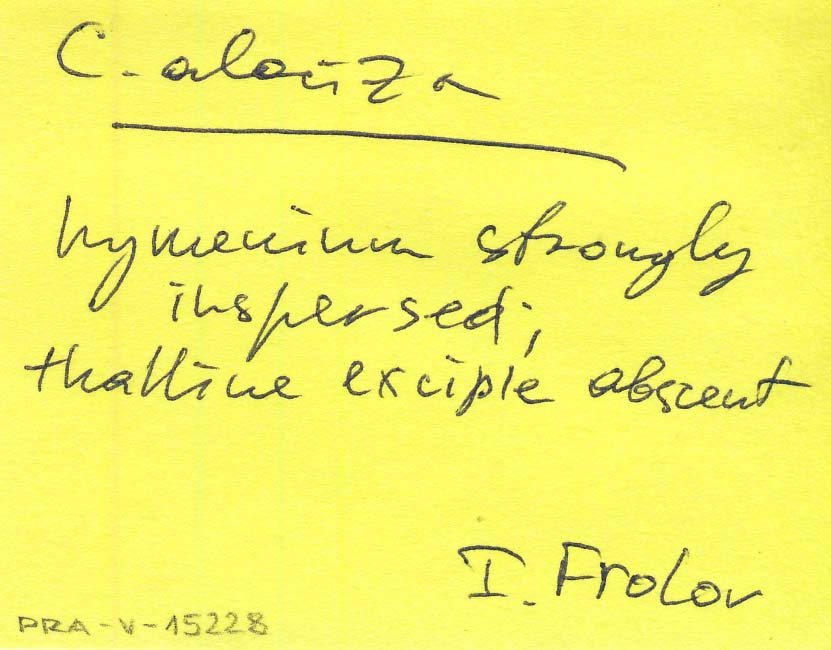 C. aloiza
hymenium strongly
inspersed;
thalline exciple abscent
I. Frolov
PRA-V-15228